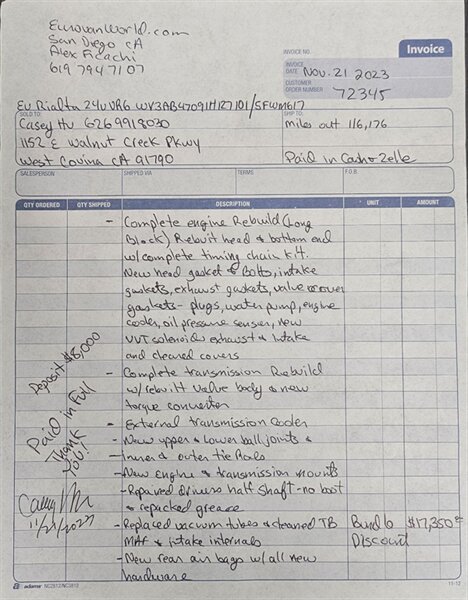 EurovanWorld.com
San Diego CA
Alex Ficachi
619 794 7107
INVOICE NO.
Invoice
INVOICE DATE Nov. 21 2023
CUSTOMER ORDER NUMBER 72345
EV Rialta 24V VR6 WV3AB47091H127101/SFWM617
SOLD TO:
Casey Hu 626 991 8030
1152 E Walnut Creek Pkwy
West Covina CA 91790
SHIP TO:
Miles out 116,176
Paid in Cash & Zelle
SALESPERSON SHIPPED VIA TERMS F.O.B.
QTY ORDERED QTY SHIPPED DESCRIPTION UNIT AMOUNT
- Complete engine Rebuild (Long
Block) Rebuit head & bottom end
w/complete timing chain kit.
New head gasket & Bolts, intake
gaskets, exhaust gaskets, valve cover
gaskets - plugs, water pump, engine
cooler, oil pressure sensor, new
VVT solenoids exhaust & Intake
and cleaned covers
- Complete transmission Rebuild
w/rebuilt valve body & new
torque converter
- External transmission Cooler
- New upper & lower ball joints &
Inner & outer tie Rods
- New Engine & transmission mounts
- Repaired drivers half Shaft - no boot
& repacked grease
- Replaced vacuum tubes & cleaned TB
MAF & intake internals
- New rear air bags w/all new
hardware
Bundle $17,350
Discount
Deposit $8,000
Paid in Full
Thank
You!
11/21/2023
adams NC2812/NC3812
11-12